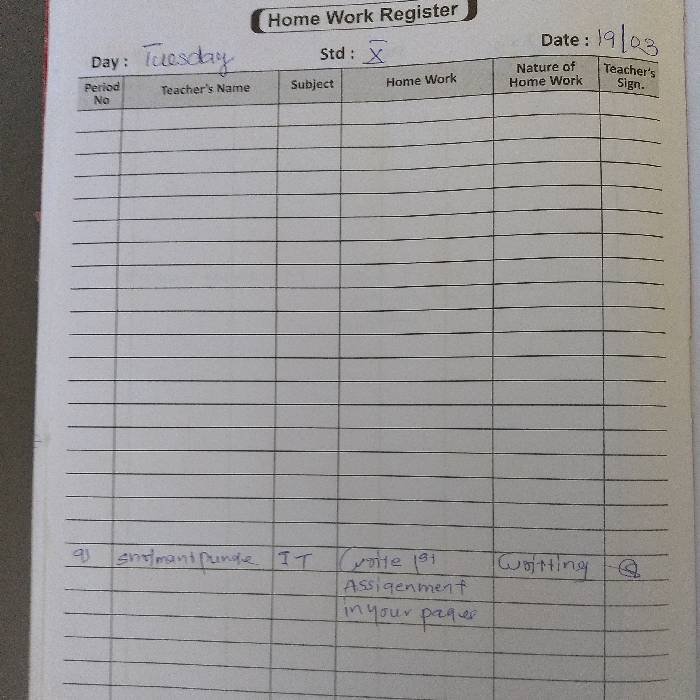 Home Work Register
Day : Tuesday Std : X Date : 19/03
Period No Teacher's Name Subject Home Work Nature of Home Work Teacher's Sign.
9) IT Write 1st Writting
Assigenment
in your pages